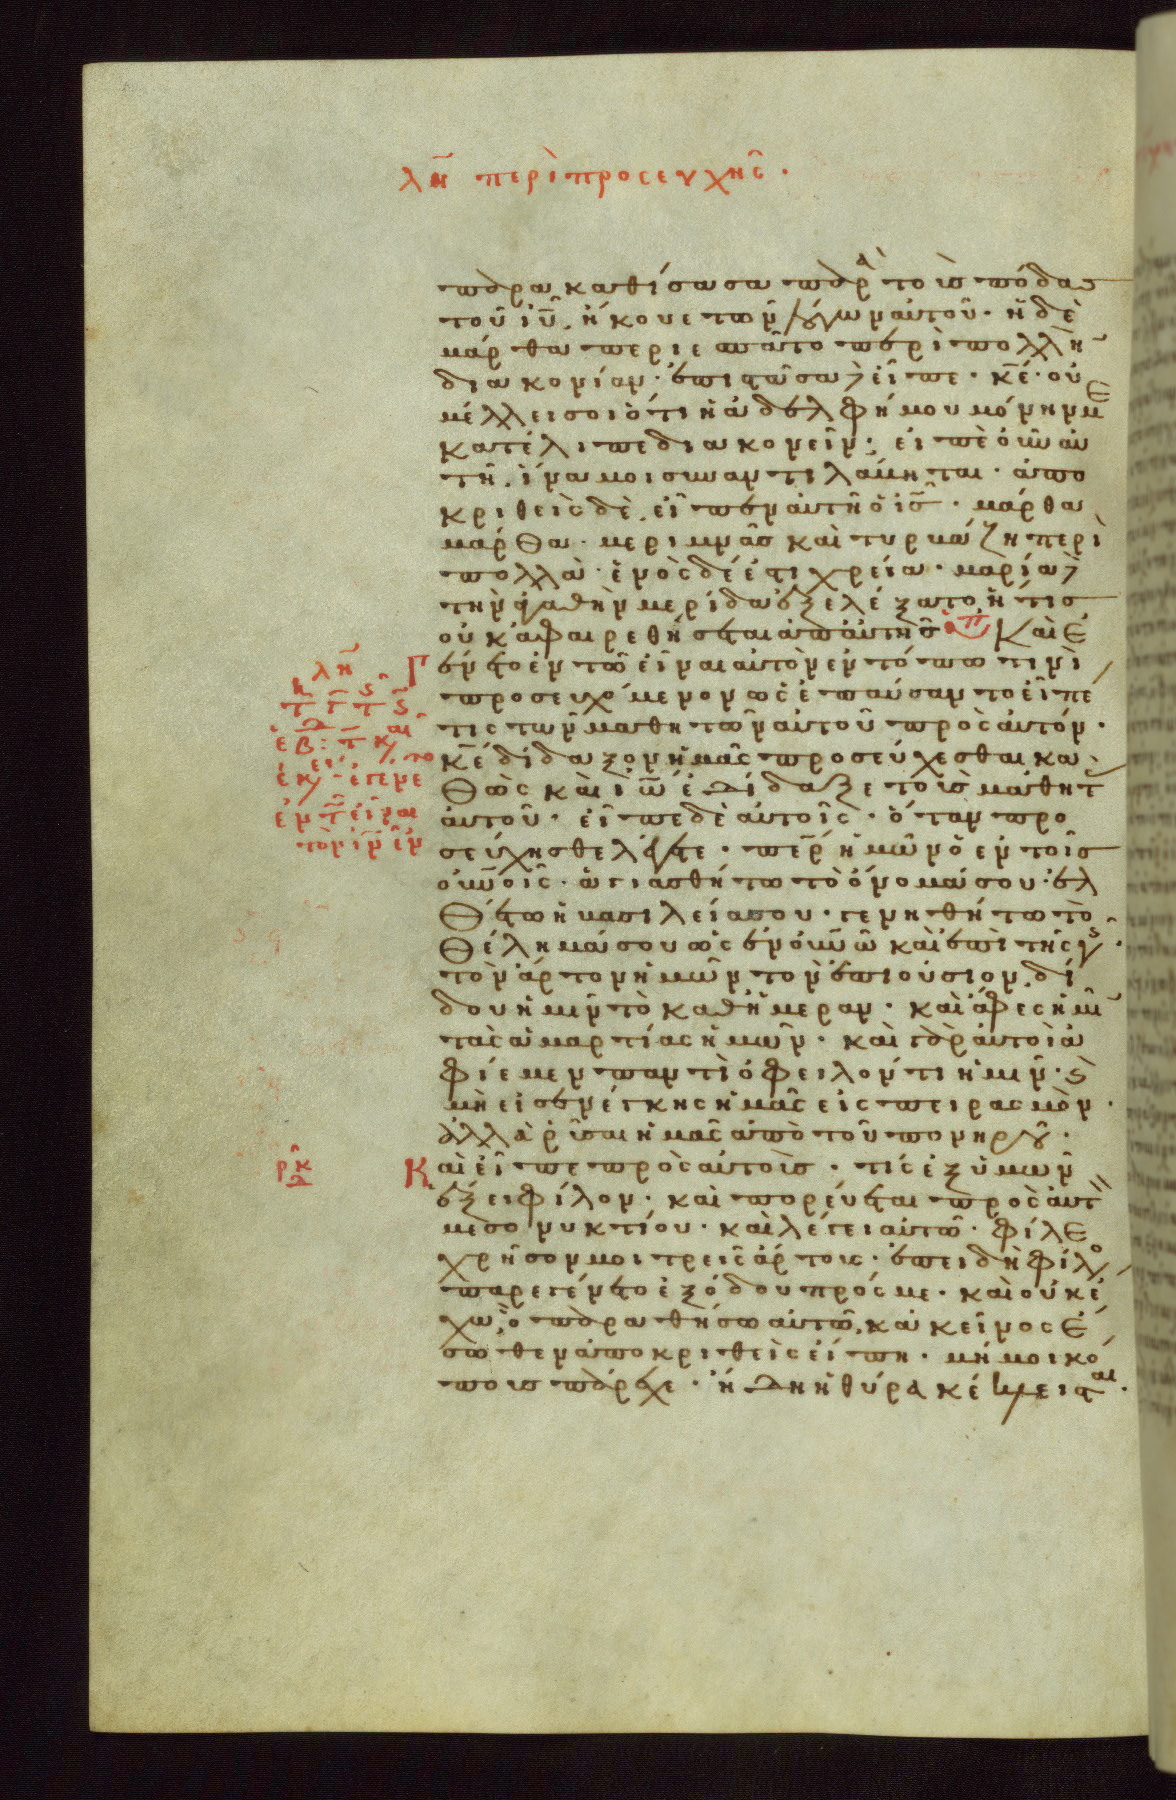 λη περὶ προσευχῆς ·
παρακαθίσασα παρὰ τοὺς πόδας
τοῦ ἰῦ, ἤκουε τῶν λόγων αὐτοῦ · ἡ δὲ
μάρθα περιεσπᾶτο περὶ πολλὴ
διακονίαν · ἐπιστᾶσα εἶπε · κε· οὐ
μέλλει σοι ὅτι ἡ ἀδελφή μου μόνην με
κατέλιπε διακονεῖν ; εἰπὲ οὖν αὐ
τῆ, ἵνα μοι συναντιλάβηται · ἀπο
κριθεὶς δὲ, εἶπεν αὐτῆ ὁ ἰς · μάρθα
μάρθα · μεριμνᾶς καὶ τυρβάζη περὶ
πολλὰ · ἑνὸς δέ ἐστι χρεία · μαρία
τὴν ἀγαθὴν μερίδα ἐξελέξατο, ἥτις
οὐκ ἀφαιρεθήσεται ἀπ' αὐτῆς Καὶ ἐ
γένετο ἐν τῶ εἶναι αὐτὸν ἐν τόπω τινὶ
προσευχόμενον ὡς ἐπαύσατο εἶπέ
τις τῶν μαθητῶν αὐτοῦ πρὸς αὐτόν ·
κε δίδαξον ἡμᾶς προσεύχεσθαι κα
θὼς καὶ ἰω ἐδίδαξε τοὺς μαθητ
αὐτοῦ · εἶπε δὲ αὐτοῖς · ὅταν προ
σεύχησθε λέγετε · περ ἡμῶν ὁ ἐν τοῖς
οὐνοις · ἁγιασθήτω τὸ ὄνομά σου · ἐλ
θέτω ἡ βασιλεία σου · γενηθήτω τὸ
θέλημά σου ὡς ἐν οὐνω καὶ ἐπὶ τῆς γῆς ·
τὸν ἄρτον ἡμῶν τὸν ἐπιούσιον, δί
δου ἡμῖν τὸ καθ' ἡμέραν · καὶ ἄφες ἡμῖ
τὰς ἁμαρτίας ἡμῶν · καὶ γὰρ αὐτοὶ ἀ
φίεμεν παντὶ ὀφείλοντι ἡμῖν · ϗ
μὴ εἰσενέγκης ἡμᾶς εἰς πειρασμὸν ·
ἀλλὰ ῥῦσαι ἡμᾶς ἀπὸ τοῦ πονηροῦ ·
Καὶ εἶπε πρὸς αὐτοὺς · τίς ἐξ ὑμῶν
ἕξει φίλον · καὶ πορεύσεται πρὸς αὐτ
μεσονυκτίου · καὶ λέγει αὐτῶ · φίλε
χρῆσον μοι τρεῖς ἄρτους · ἐπειδὴ φίλος
παρεγένετο ἐξ ὁδοῦ πρός με · καὶ οὐκ ἔ
χω, ὃ παραθήσω αὐτῶ, κἀκεῖνος ἔ
σωθεν ἀποκριθεὶς εἴπη · μή μοι κό
πους πάρεχε · ἤδη ἡ θύρα κέκλεισται ·
λη
ἐν τ εἶναι
τὸν ἰν ἐν
ρκ